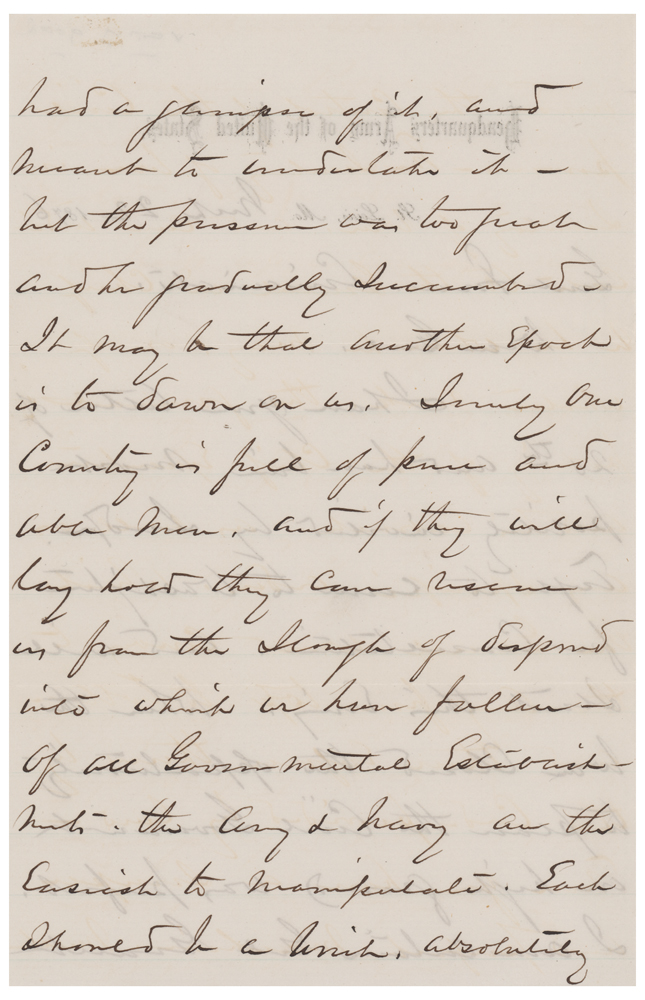 had a glimpse of it, and
meant to undertake it —
but the pressure was too great
and he gradually Succumbed —
It may be that another Epoch
is to dawn on us. Surely Our
Country is full of pure and
able men, and if they will
lay hold they can rescue
us from the Slough of despond
into which we have fallen —
Of all Governmental Establish-
ments. the Army & Navy are the
Easiest to manipulate. Each
Should be a Unit, absolutely
Headquarters Army of the United States